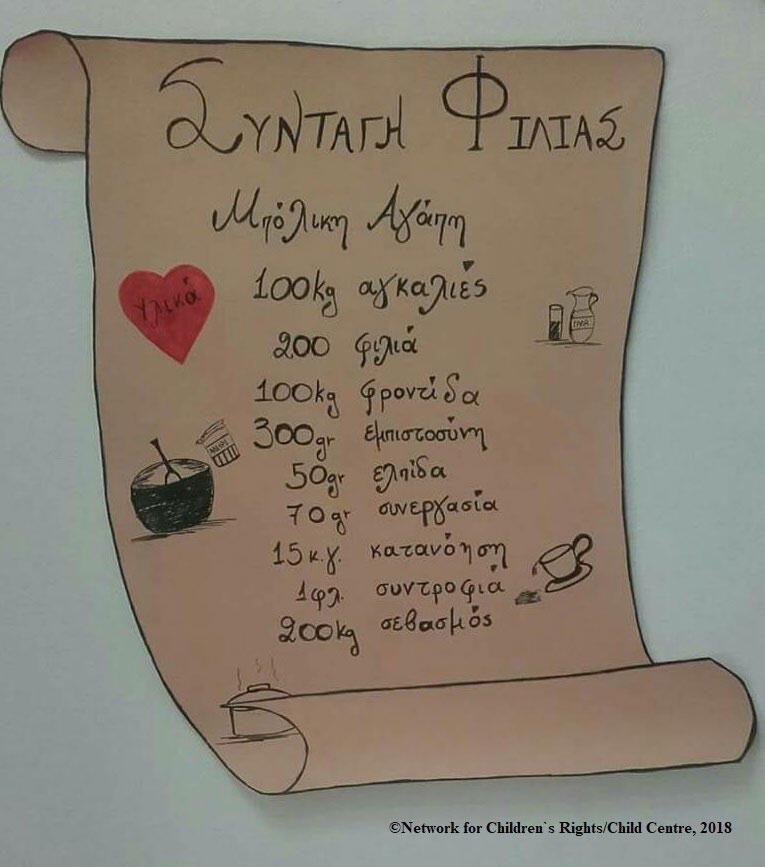 ΣΥΝΤΑΓΗ ΦΙΛΙΑΣ
Μπόλικη Αγάπη
Υλικά
100kg αγκαλιές
200 φιλιά
100kg φροντίδα
300gr εμπιστοσύνη
50gr ελπίδα
70gr συνεργασία
15 κ.γ. κατανόηση
1φλ. συντροφιά
200kg σεβασμός
©Network for Children`s Rights/Child Centre, 2018